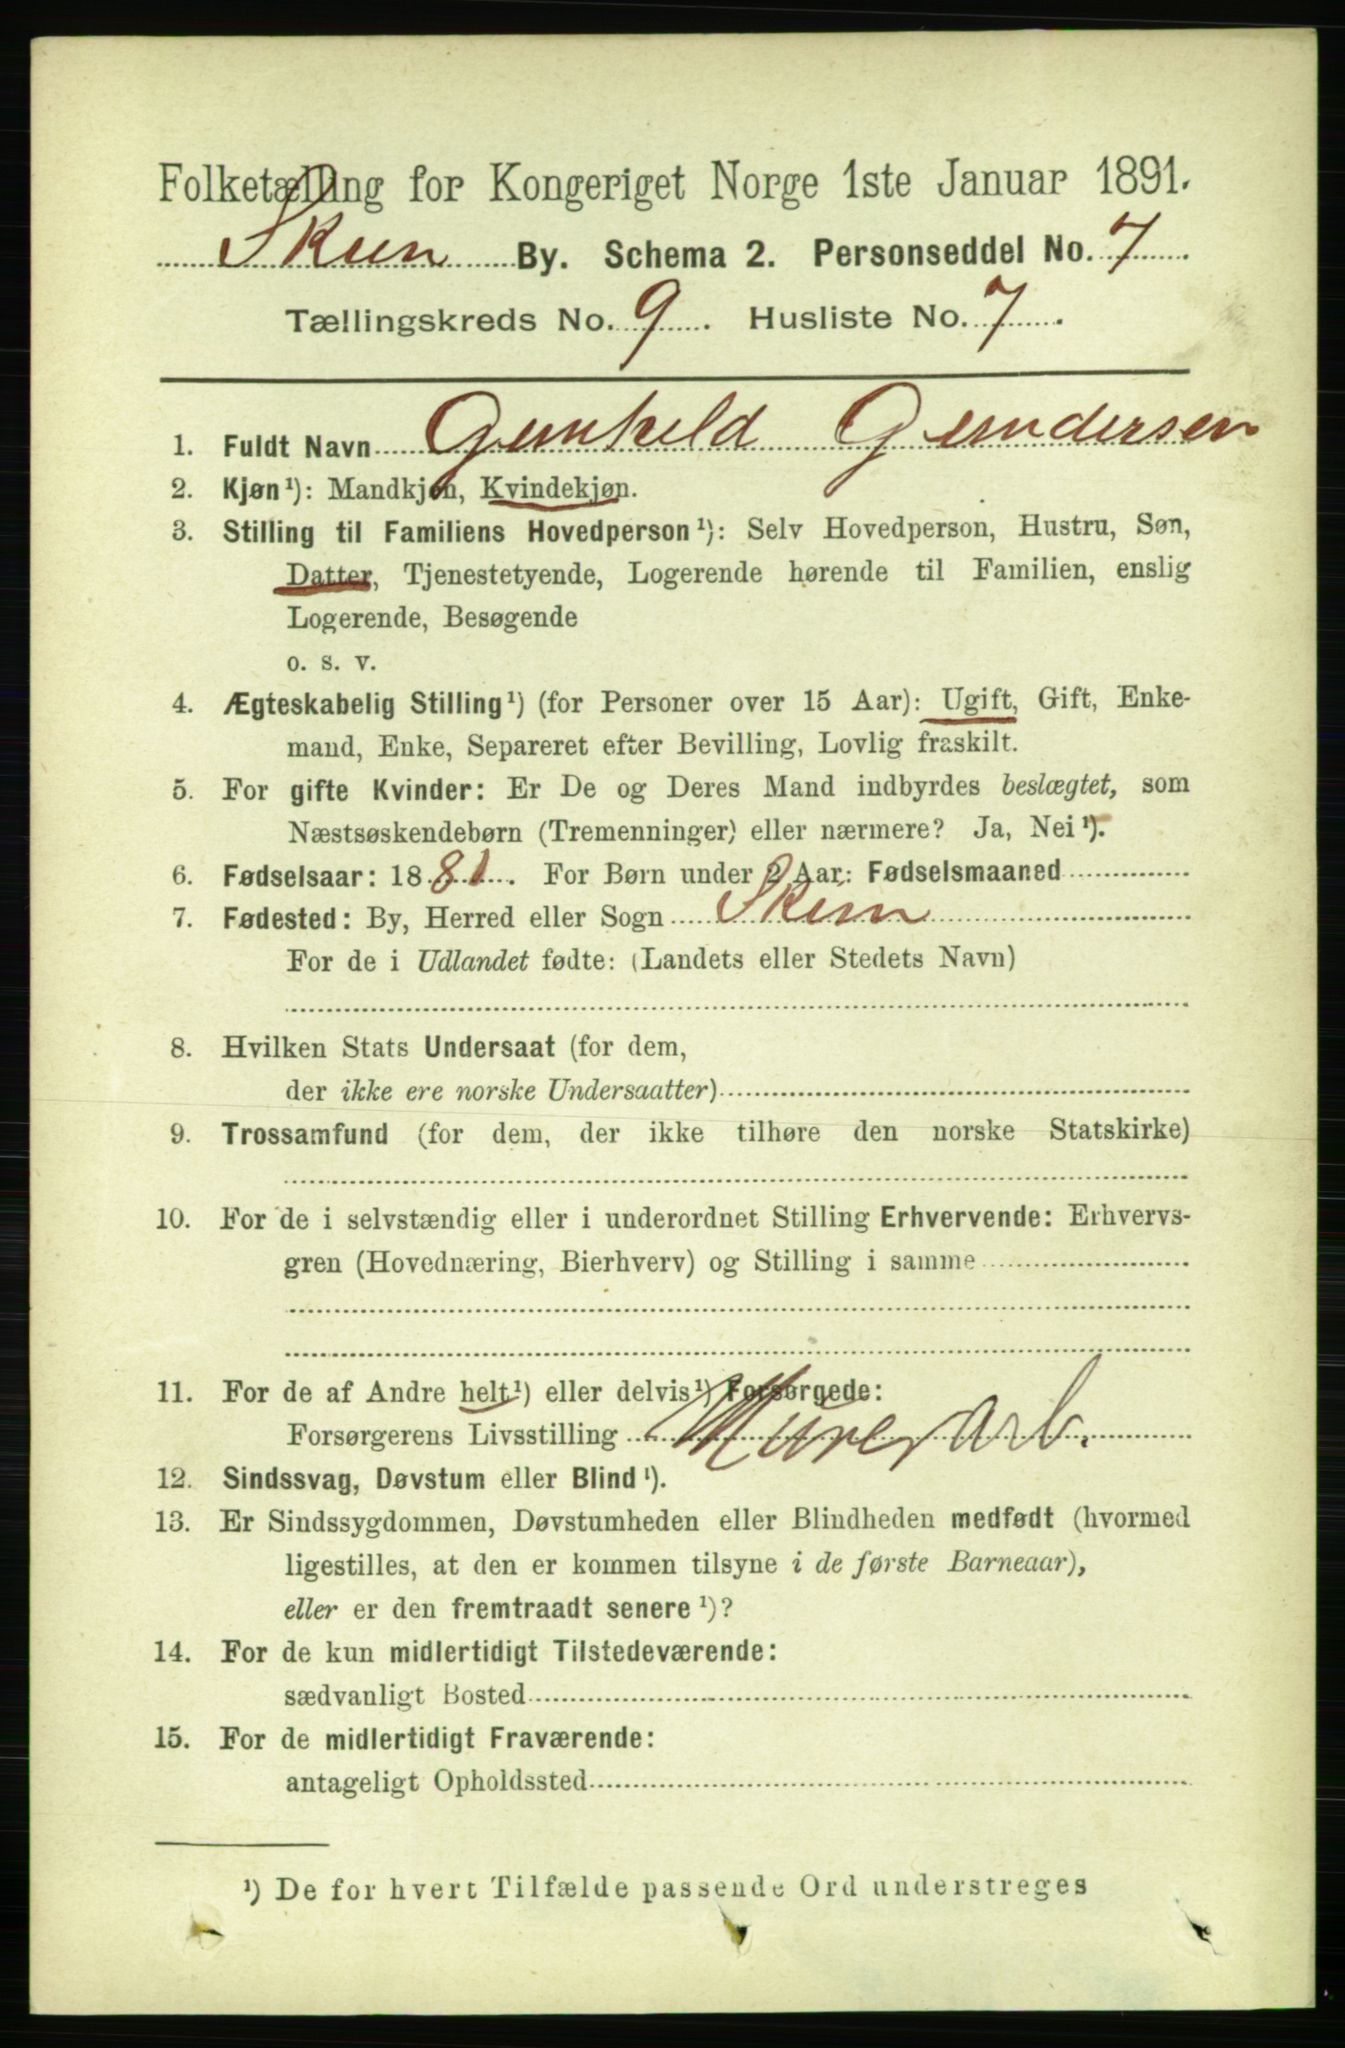 Folketælling for Kongeriget Norge 1ste Januar 1891.
Skien By. Schema 2. Personseddel No. 7
Tællingskreds No. 9. Husliste No. 7.
1. Fuldt Navn Gunhild Gundersen
2. Kjøn¹): Mandkjøn, Kvindekjøn.
3. Stilling til Familiens Hovedperson¹): Selv Hovedperson, Hustru, Søn,
Datter, Tjenestetyende, Logerende hørende til Familien, enslig
Logerende, Besøgende
o. s. v.
4. Ægteskabelig Stilling¹) (for Personer over 15 Aar): Ugift, Gift, Enke-
mand, Enke, Separeret efter Bevilling, Lovlig fraskilt.
5. For gifte Kvinder: Er De og Deres Mand indbyrdes beslægtet, som
Næstsøskendebørn (Tremenninger) eller nærmere? Ja, Nei¹).
6. Fødselsaar: 1881. For Børn under 2 Aar: Fødselsmaaned
7. Fødested: By, Herred eller Sogn Skien
For de i Udlandet fødte: (Landets eller Stedets Navn)
8. Hvilken Stats Undersaat (for dem,
der ikke ere norske Undersaatter)
9. Trossamfund (for dem, der ikke tilhøre den norske Statskirke)
10. For de i selvstændig eller i underordnet Stilling Erhvervende: Erhvervs-
gren (Hovednæring, Bierhverv) og Stilling i samme
11. For de af Andre helt¹) eller delvis¹) Forsørgede:
Forsørgerens Livsstilling Murerarb.
12. Sindssvag, Døvstum eller Blind¹).
13. Er Sindssygdommen, Døvstumheden eller Blindheden medfødt (hvormed
ligestilles, at den er kommen tilsyne i de første Barneaar),
eller er den fremtraadt senere¹)?
14. For de kun midlertidigt Tilstedeværende:
sædvanligt Bosted
15. For de midlertidigt Fraværende:
antageligt Opholdssted
¹) De for hvert Tilfælde passende Ord understreges